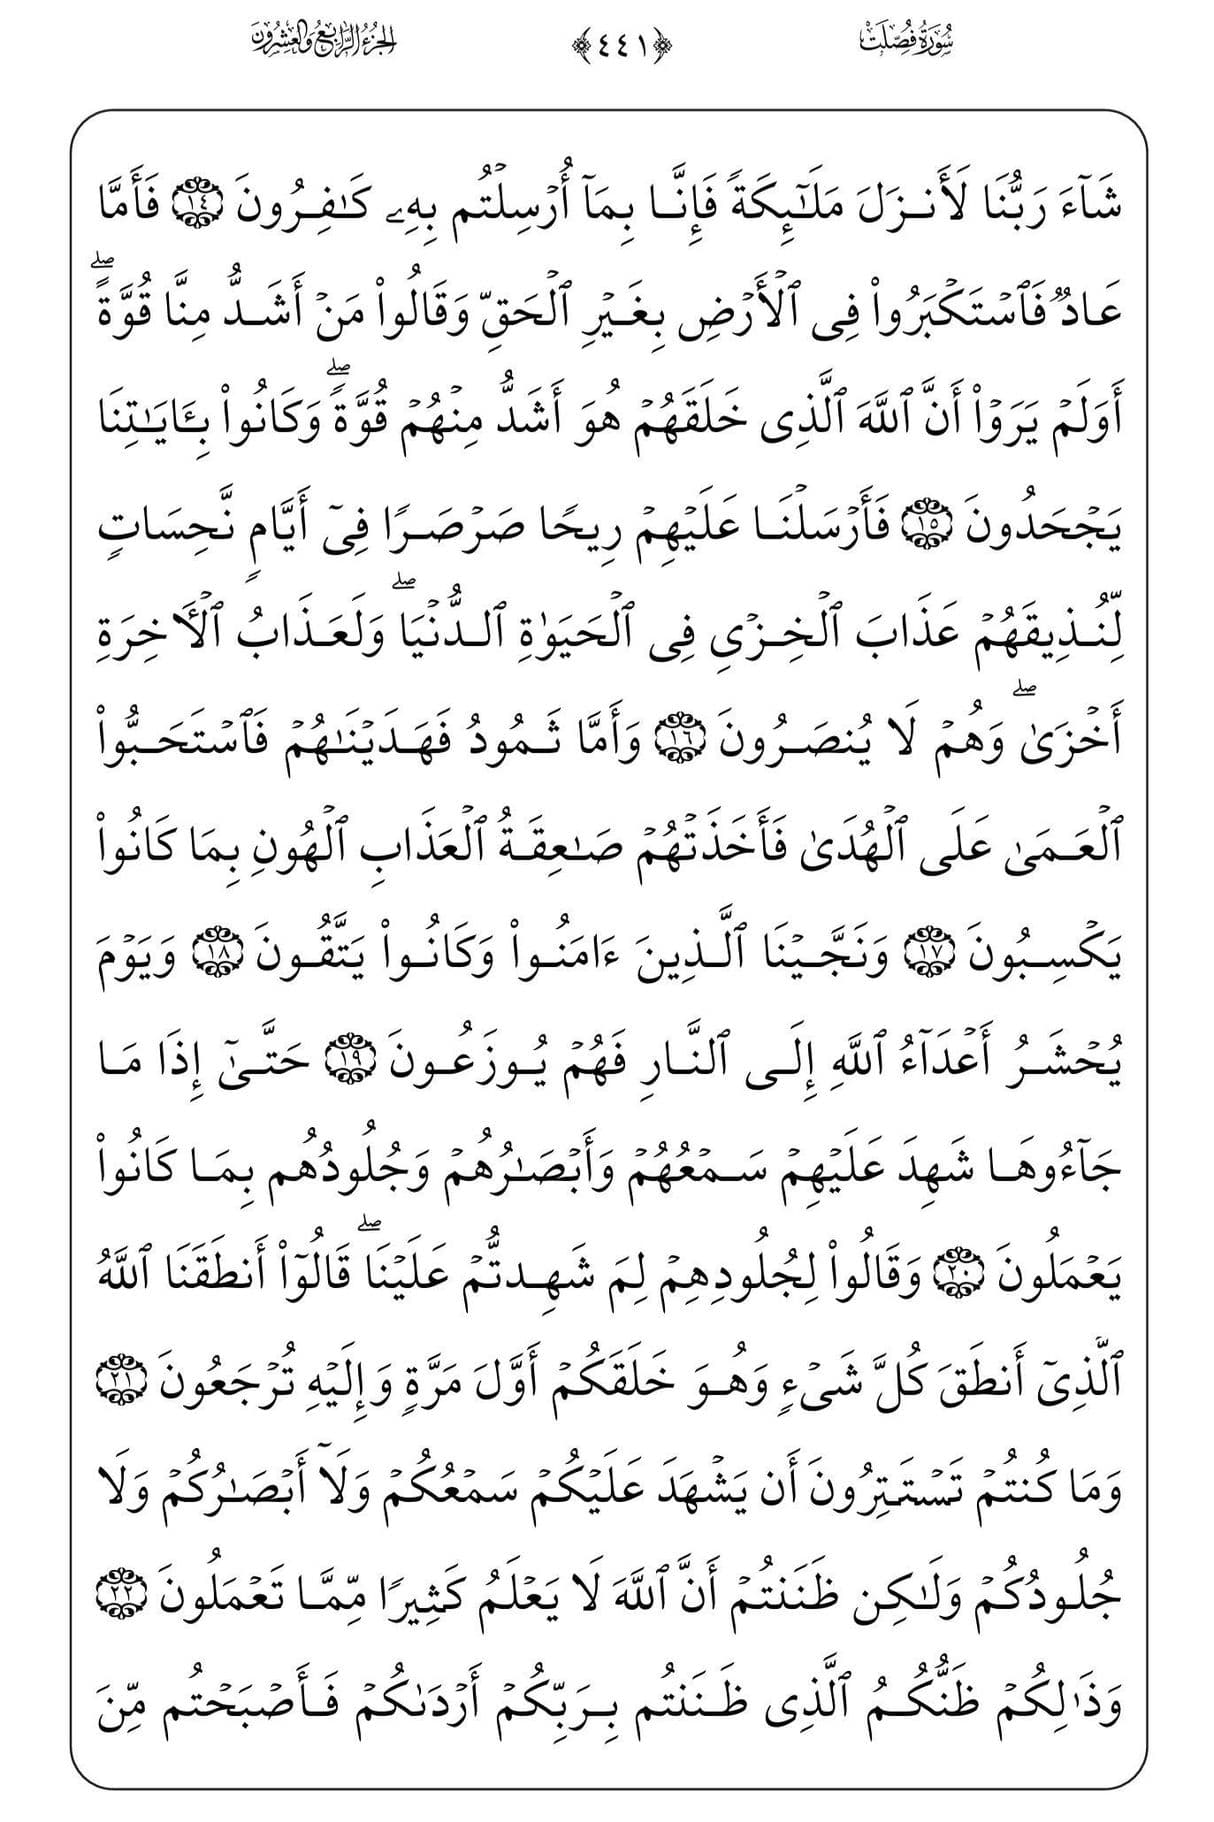 سُورَةُ فُصِّلَتْ ﴿٤٤١﴾ الجُزْءُ الرَّابِعُ وَالعِشْرُونَ
شَآءَ رَبُّنَا لَأَنزَلَ مَلَٰٓئِكَةً فَإِنَّا بِمَآ أُرْسِلْتُم بِهِۦ كَٰفِرُونَ ١٤ فَأَمَّا
عَادٌ فَٱسْتَكْبَرُوا۟ فِى ٱلْأَرْضِ بِغَيْرِ ٱلْحَقِّ وَقَالُوا۟ مَنْ أَشَدُّ مِنَّا قُوَّةً ۖ
أَوَلَمْ يَرَوْا۟ أَنَّ ٱللَّهَ ٱلَّذِى خَلَقَهُمْ هُوَ أَشَدُّ مِنْهُمْ قُوَّةً ۖ وَكَانُوا۟ بِـَٔايَٰتِنَا
يَجْحَدُونَ ١٥ فَأَرْسَلْنَا عَلَيْهِمْ رِيحًا صَرْصَرًا فِىٓ أَيَّامٍ نَّحِسَاتٍ
لِّنُذِيقَهُمْ عَذَابَ ٱلْخِزْىِ فِى ٱلْحَيَوٰةِ ٱلدُّنْيَا ۖ وَلَعَذَابُ ٱلْـَٔاخِرَةِ
أَخْزَىٰ ۖ وَهُمْ لَا يُنصَرُونَ ١٦ وَأَمَّا ثَمُودُ فَهَدَيْنَٰهُمْ فَٱسْتَحَبُّوا۟
ٱلْعَمَىٰ عَلَى ٱلْهُدَىٰ فَأَخَذَتْهُمْ صَٰعِقَةُ ٱلْعَذَابِ ٱلْهُونِ بِمَا كَانُوا۟
يَكْسِبُونَ ١٧ وَنَجَّيْنَا ٱلَّذِينَ ءَامَنُوا۟ وَكَانُوا۟ يَتَّقُونَ ١٨ وَيَوْمَ
يُحْشَرُ أَعْدَآءُ ٱللَّهِ إِلَى ٱلنَّارِ فَهُمْ يُوزَعُونَ ١٩ حَتَّىٰٓ إِذَا مَا
جَآءُوهَا شَهِدَ عَلَيْهِمْ سَمْعُهُمْ وَأَبْصَٰرُهُمْ وَجُلُودُهُم بِمَا كَانُوا۟
يَعْمَلُونَ ٢٠ وَقَالُوا۟ لِجُلُودِهِمْ لِمَ شَهِدتُّمْ عَلَيْنَا ۖ قَالُوٓا۟ أَنطَقَنَا ٱللَّهُ
ٱلَّذِىٓ أَنطَقَ كُلَّ شَىْءٍ وَهُوَ خَلَقَكُمْ أَوَّلَ مَرَّةٍ وَإِلَيْهِ تُرْجَعُونَ ٢١
وَمَا كُنتُمْ تَسْتَتِرُونَ أَن يَشْهَدَ عَلَيْكُمْ سَمْعُكُمْ وَلَآ أَبْصَٰرُكُمْ وَلَا
جُلُودُكُمْ وَلَٰكِن ظَنَنتُمْ أَنَّ ٱللَّهَ لَا يَعْلَمُ كَثِيرًا مِّمَّا تَعْمَلُونَ ٢٢
وَذَٰلِكُمْ ظَنُّكُمُ ٱلَّذِى ظَنَنتُم بِرَبِّكُمْ أَرْدَىٰكُمْ فَأَصْبَحْتُم مِّنَ